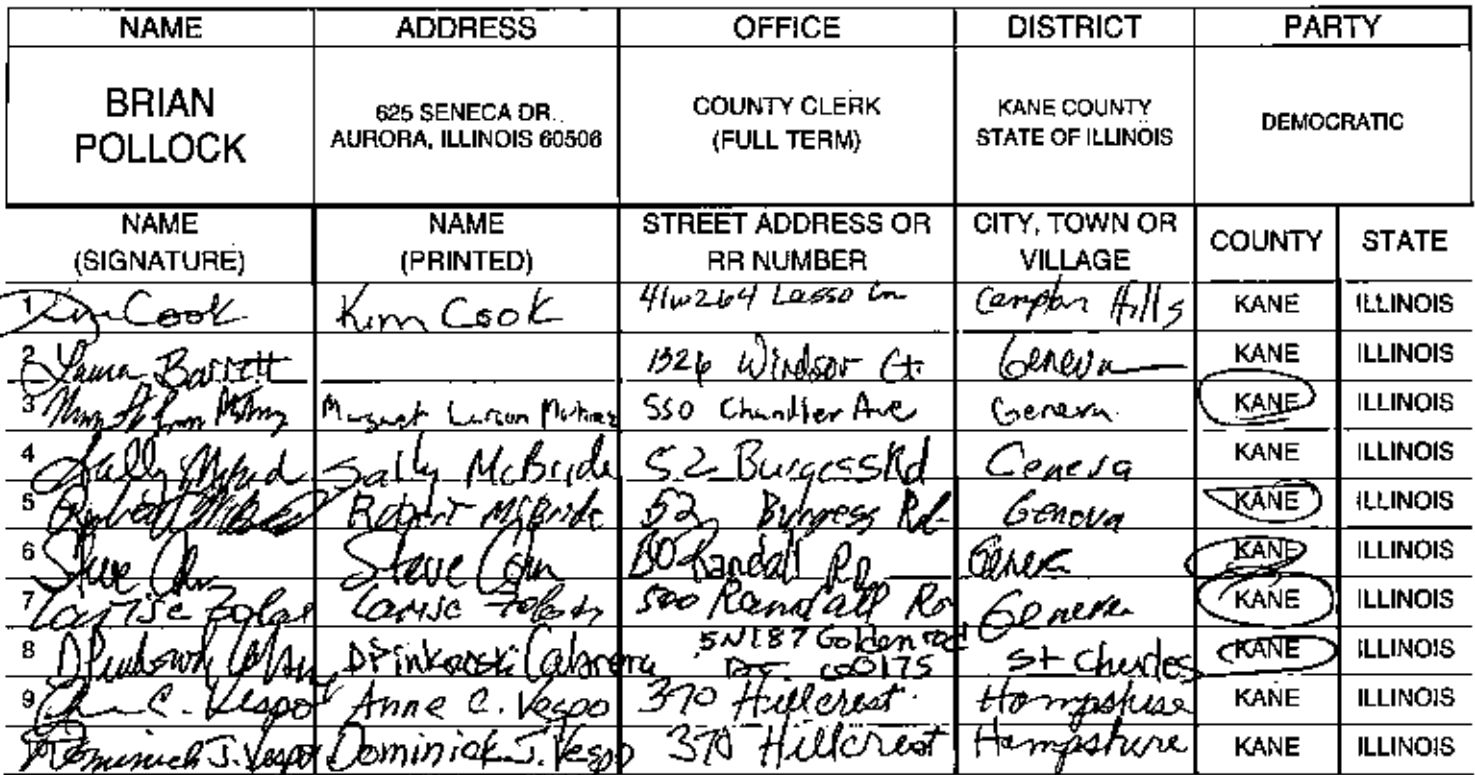 NAME ADDRESS OFFICE DISTRICT PARTY
BRIAN POLLOCK 625 SENECA DR. AURORA, ILLINOIS 60506 COUNTY CLERK (FULL TERM) KANE COUNTY STATE OF ILLINOIS DEMOCRATIC
NAME (SIGNATURE) NAME (PRINTED) STREET ADDRESS OR RR NUMBER CITY, TOWN OR VILLAGE COUNTY STATE
1 Kim Cook Kim Cook 41W264 Lasso Ln Campton Hills KANE ILLINOIS
2 Laura Barrett 1326 Windsor Ct. Geneva KANE ILLINOIS
3 Larson 550 Chandler Ave Geneva KANE ILLINOIS
4 Sally Sally McBride 52 Burgess Rd Geneva KANE ILLINOIS
5 Robert McBride 52 Burgess Rd Geneva KANE ILLINOIS
6 Steve Steve Randall Rd Geneva KANE ILLINOIS
7 500 Randall Rd Geneva KANE ILLINOIS
8 Cabrera 5N187 Goldenrod 60175 St Charles KANE ILLINOIS
9 C. Vespo Anne C. Vespo 370 Hillcrest Hampshire KANE ILLINOIS
Dominick J. Vespo Dominick J. Vespo 370 Hillcrest Hampshire KANE ILLINOIS